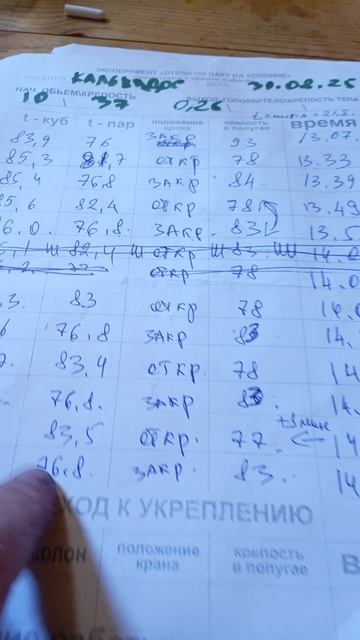 ЭКСПЕРИМЕНТ «ОТБОР ПО ПАРУ НА КОЛОННЕ»
НАПИТОК КАЛЬВАДОС ДАТА 30.08.25
НАЧ. ОБЪЕМ\КРЕПОСТЬ ВЫХОД ГОЛОВЫ\ТЕЛО\КРЕПОСТЬ ТЕЛА
10 \ 37 0,26 \
t - куб t - пар положение крана крепость в попугае время
83,9 76 ЗАКР 93 13.07
85,3 81,7 ОТКР 78 13.33
85,4 76,8 ЗАКР 84 13.39
85,6 82,4 ОТКР 78 13.49
86.0 76,8. ЗАКР. 83 13.5
82,4 ОТКР 83 14.0
77 ОТКР 78 14.0
3. 83 ОТКР 78
76,8 ЗАКР 83 14.
83,4 ОТКР 78 14
76,8. ЗАКР 83. 14.
83,5 ОТКР. 77. 14
76,8. ЗАКР. 83. 14
ХОД К УКРЕПЛЕНИЮ
КОЛОН положение крана крепость в попугае В